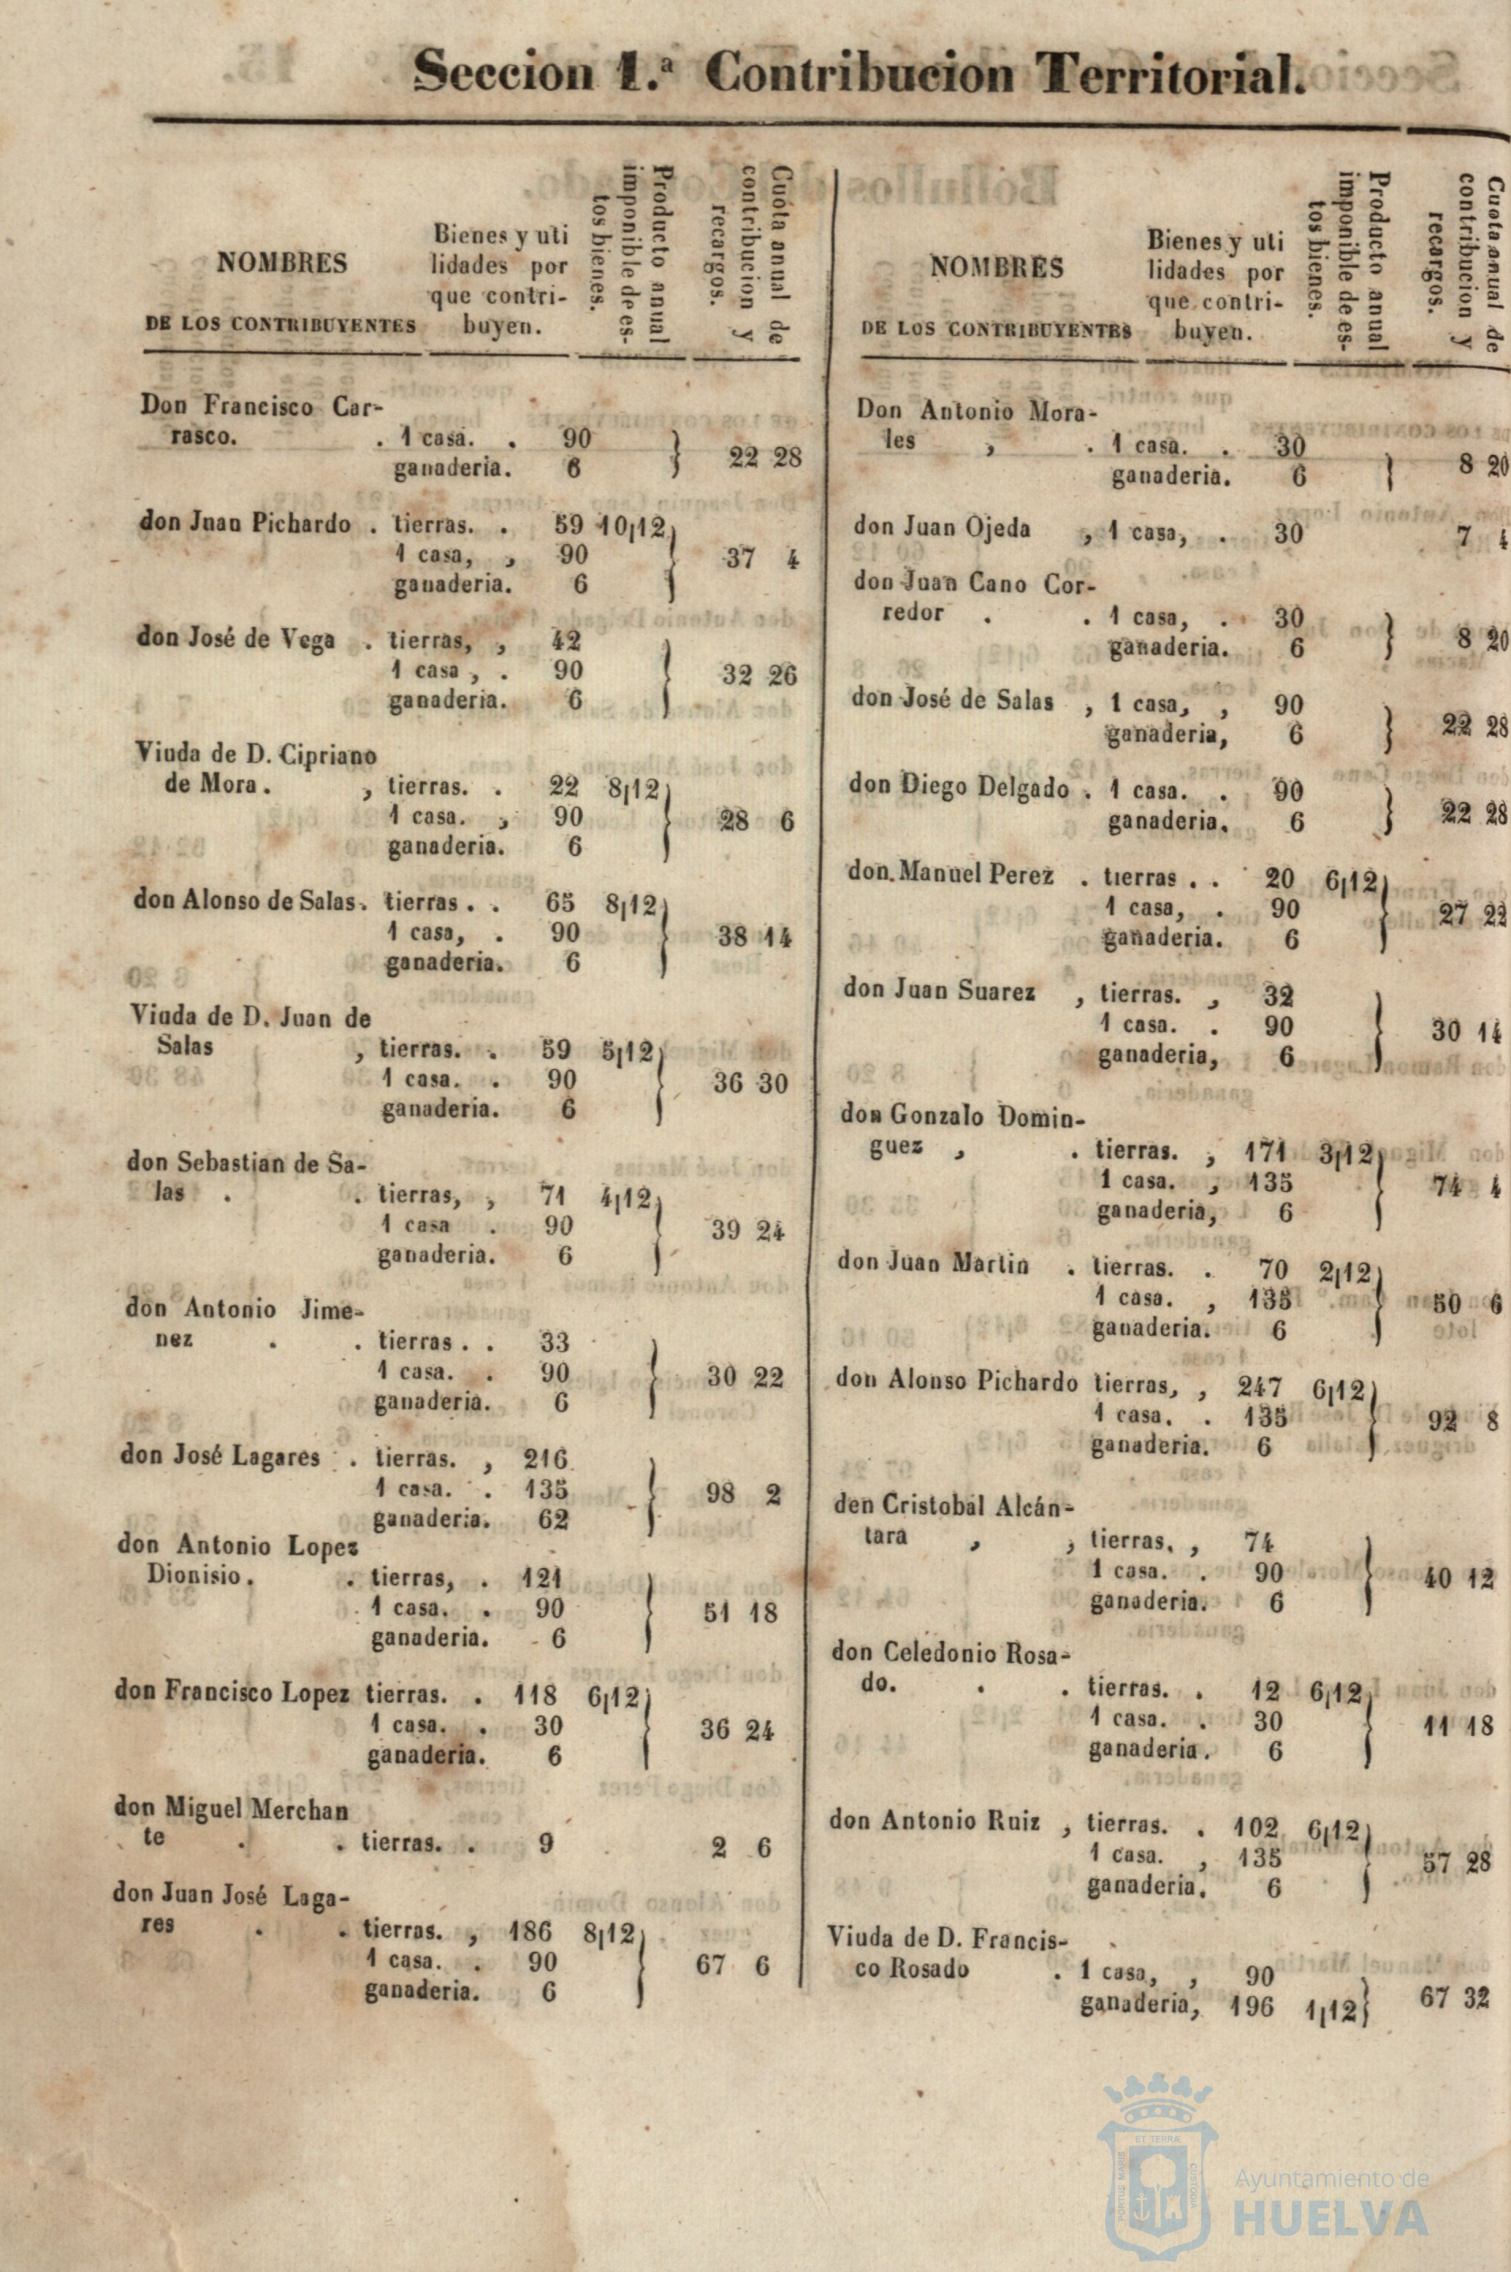 Seccion 1.ª Contribucion Territorial.
NOMBRES
DE LOS CONTRIBUYENTES
Bienes y uti
lidades por
que contri-
buyen.
Producto anual
imponible de es-
tos bienes.
Cuota anual de
contribucion y
recargos.
Don Francisco Car-
rasco. . 1 casa. . 90
ganaderia. 6 } 22 28
don Jnan Pichardo . tierras. . 59 10,12
1 casa, , 90 } 37 4
ganaderia. 6
don José de Vega . tierras, , 42
1 casa , . 90 } 32 26
ganaderia. 6
Viuda de D. Cipriano
de Mora . , tierras. . 22 8,12
1 casa. , 90 } 28 6
ganaderia. 6
don Alonso de Salas. tierras . . 65 8,12
1 casa, . 90 } 38 14
ganaderia. 6
Viuda de D. Juan de
Salas , tierras. . 59 5,12
1 casa. . 90 } 36 30
ganaderia. 6
don Sebastian de Sa-
las . . tierras, , 71 4,12
1 casa . 90 } 39 24
ganaderia. 6
don Antonio Jime-
nez . . tierras . . 33
1 casa. . 90 } 30 22
ganaderia. 6
don José Lagares . tierras. , 216
1 casa. . 135 } 98 2
ganaderia. 62
don Antonio Lopez
Dionisio . . tierras, . 121
1 casa. . 90 } 51 18
ganaderia. 6
don Francisco Lopez tierras. . 118 6,12
1 casa. . 30 } 36 24
ganaderia. 6
don Miguel Merchan
te . . tierras. . 9 2 6
don Juan José Laga-
res . . tierras. , 186 8,12
1 casa. . 90 } 67 6
ganaderia. 6
NOMBRES
DE LOS CONTRIBUYENTES
Bienes y uti
lidades por
que contri-
buyen.
Producto anual
imponible de es-
tos bienes.
Cuota anual de
contribucion y
recargos.
Don Antonio Mora-
les , . 1 casa. . 30
ganaderia. 6 } 8 20
don Juan Ojeda , 1 casa, . 30 7 4
don Juan Cano Cor-
redor . . 1 casa, . 30
ganaderia. 6 } 8 20
don José de Salas , 1 casa, , 90
ganaderia, 6 } 22 28
don Diego Delgado . 1 casa. . 90
ganaderia. 6 } 22 28
don. Manuel Perez . tierras . . 20 6,12
1 casa, . 90 } 27 22
ganaderia. 6
don Juan Suarez , tierras. , 32
1 casa. . 90 } 30 14
ganaderia, 6
don Gonzalo Domin-
guez , . tierras. , 171 3,12
1 casa. , 135 } 74 4
ganaderia, 6
don Juan Martin . tierras. . 70 2,12
1 casa. , 135 } 50 6
ganaderia. 6
don Alonso Pichardo tierras, , 247 6,12
1 casa. . 135 } 92 8
ganaderia. 6
den Cristobal Alcán-
tara , , tierras. , 74
1 casa. . 90 } 40 12
ganaderia. 6
don Celedonio Rosa-
do. . . tierras. . 12 6,12
1 casa. . 30 } 11 18
ganaderia . 6
don Antonio Ruiz , tierras. . 102 6,12
1 casa. , 135 } 57 28
ganaderia. 6
Viuda de D. Francis-
co Rosado . 1 casa, , 90
ganaderia, 196 1,12 } 67 32
ET TERRÆ
PORTUS MARIS
CUSTODIA
Ayuntamiento de
HUELVA